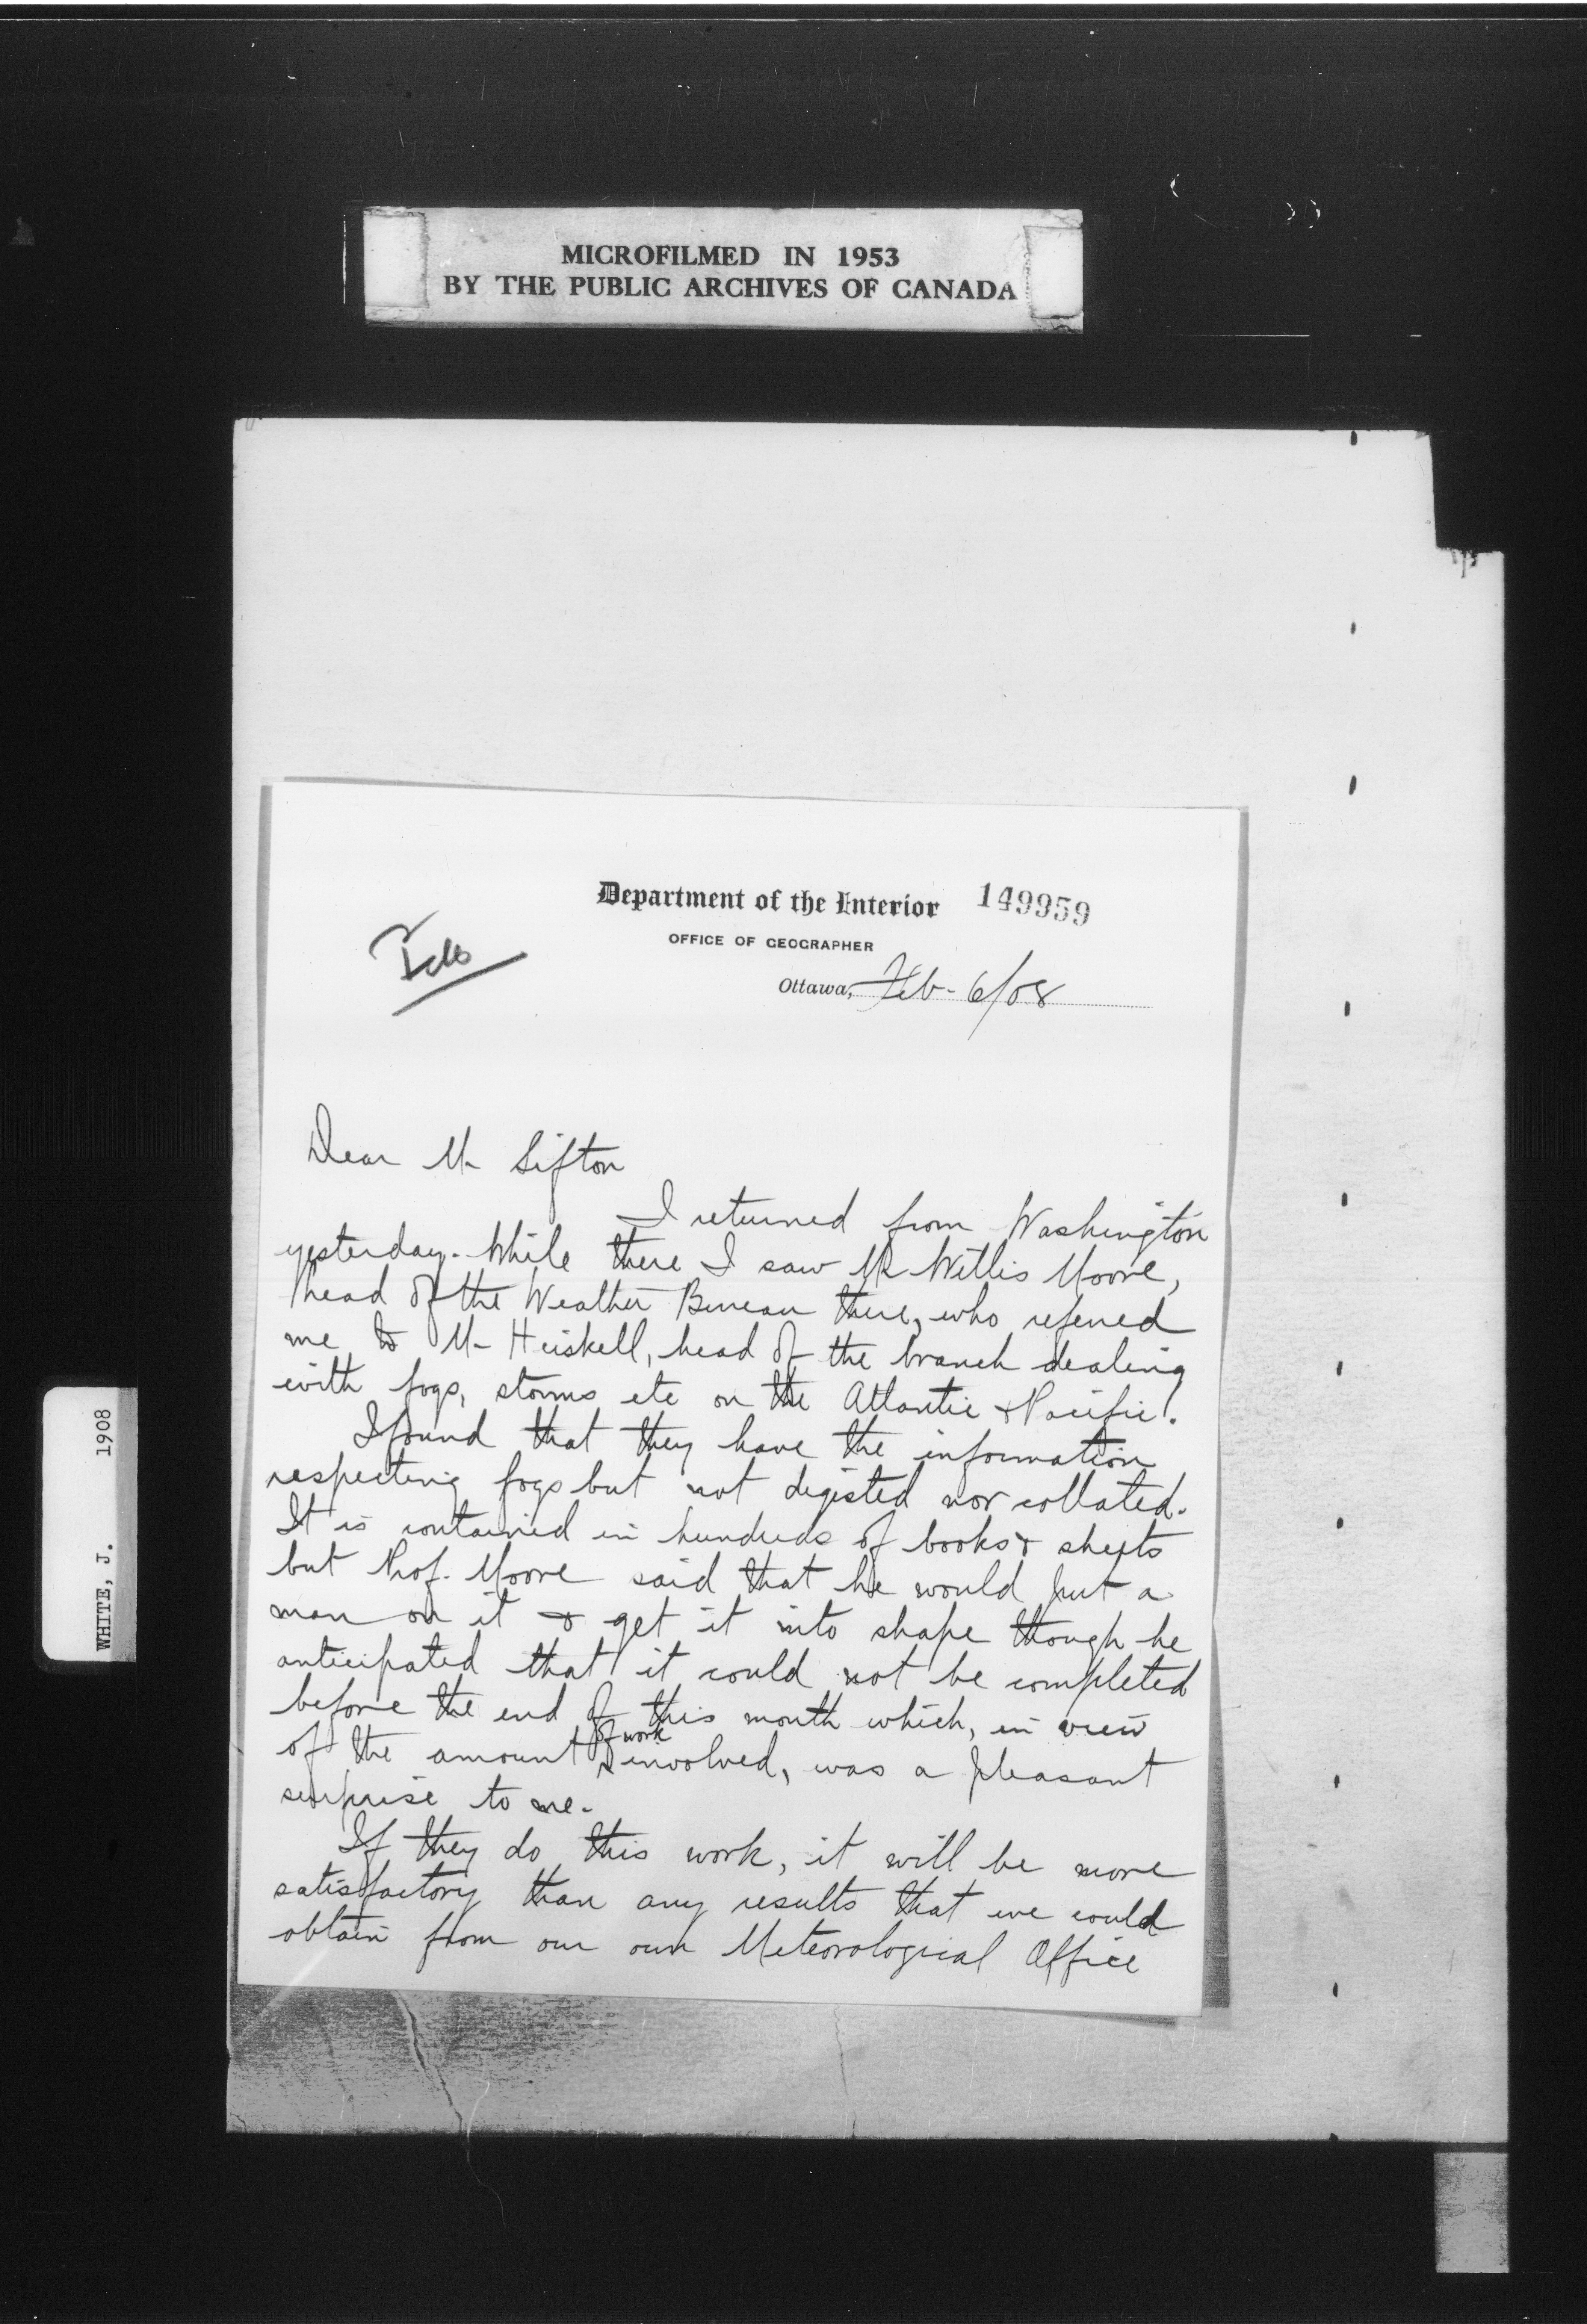 MICROFILMED IN 1953
BY THE PUBLIC ARCHIVES OF CANADA
WHITE, J. 1908
Department of the Interior 149959
OFFICE OF GEOGRAPHER
Ottawa, Feb- 6/08
Dear Mr Sifton
I returned from Washington
yesterday. While there I saw Mr Willis Moore,
head of the Weather Bureau there, who referred
me to Mr Heiskell, head of the branch dealing
with fogs, storms etc on the Atlantic & Pacific.
I found that they have the information
respecting fogs but not digested nor collated.
It is contained in hundreds of books & sheets
but Prof. Moore said that he would put a
man on it & get it into shape though he
anticipated that it could not be completed
before the end of this month which, in view
of the amount of work involved, was a pleasant
surprise to me.
If they do this work, it will be more
satisfactory than any results that we could
obtain from our own Meteorological Office